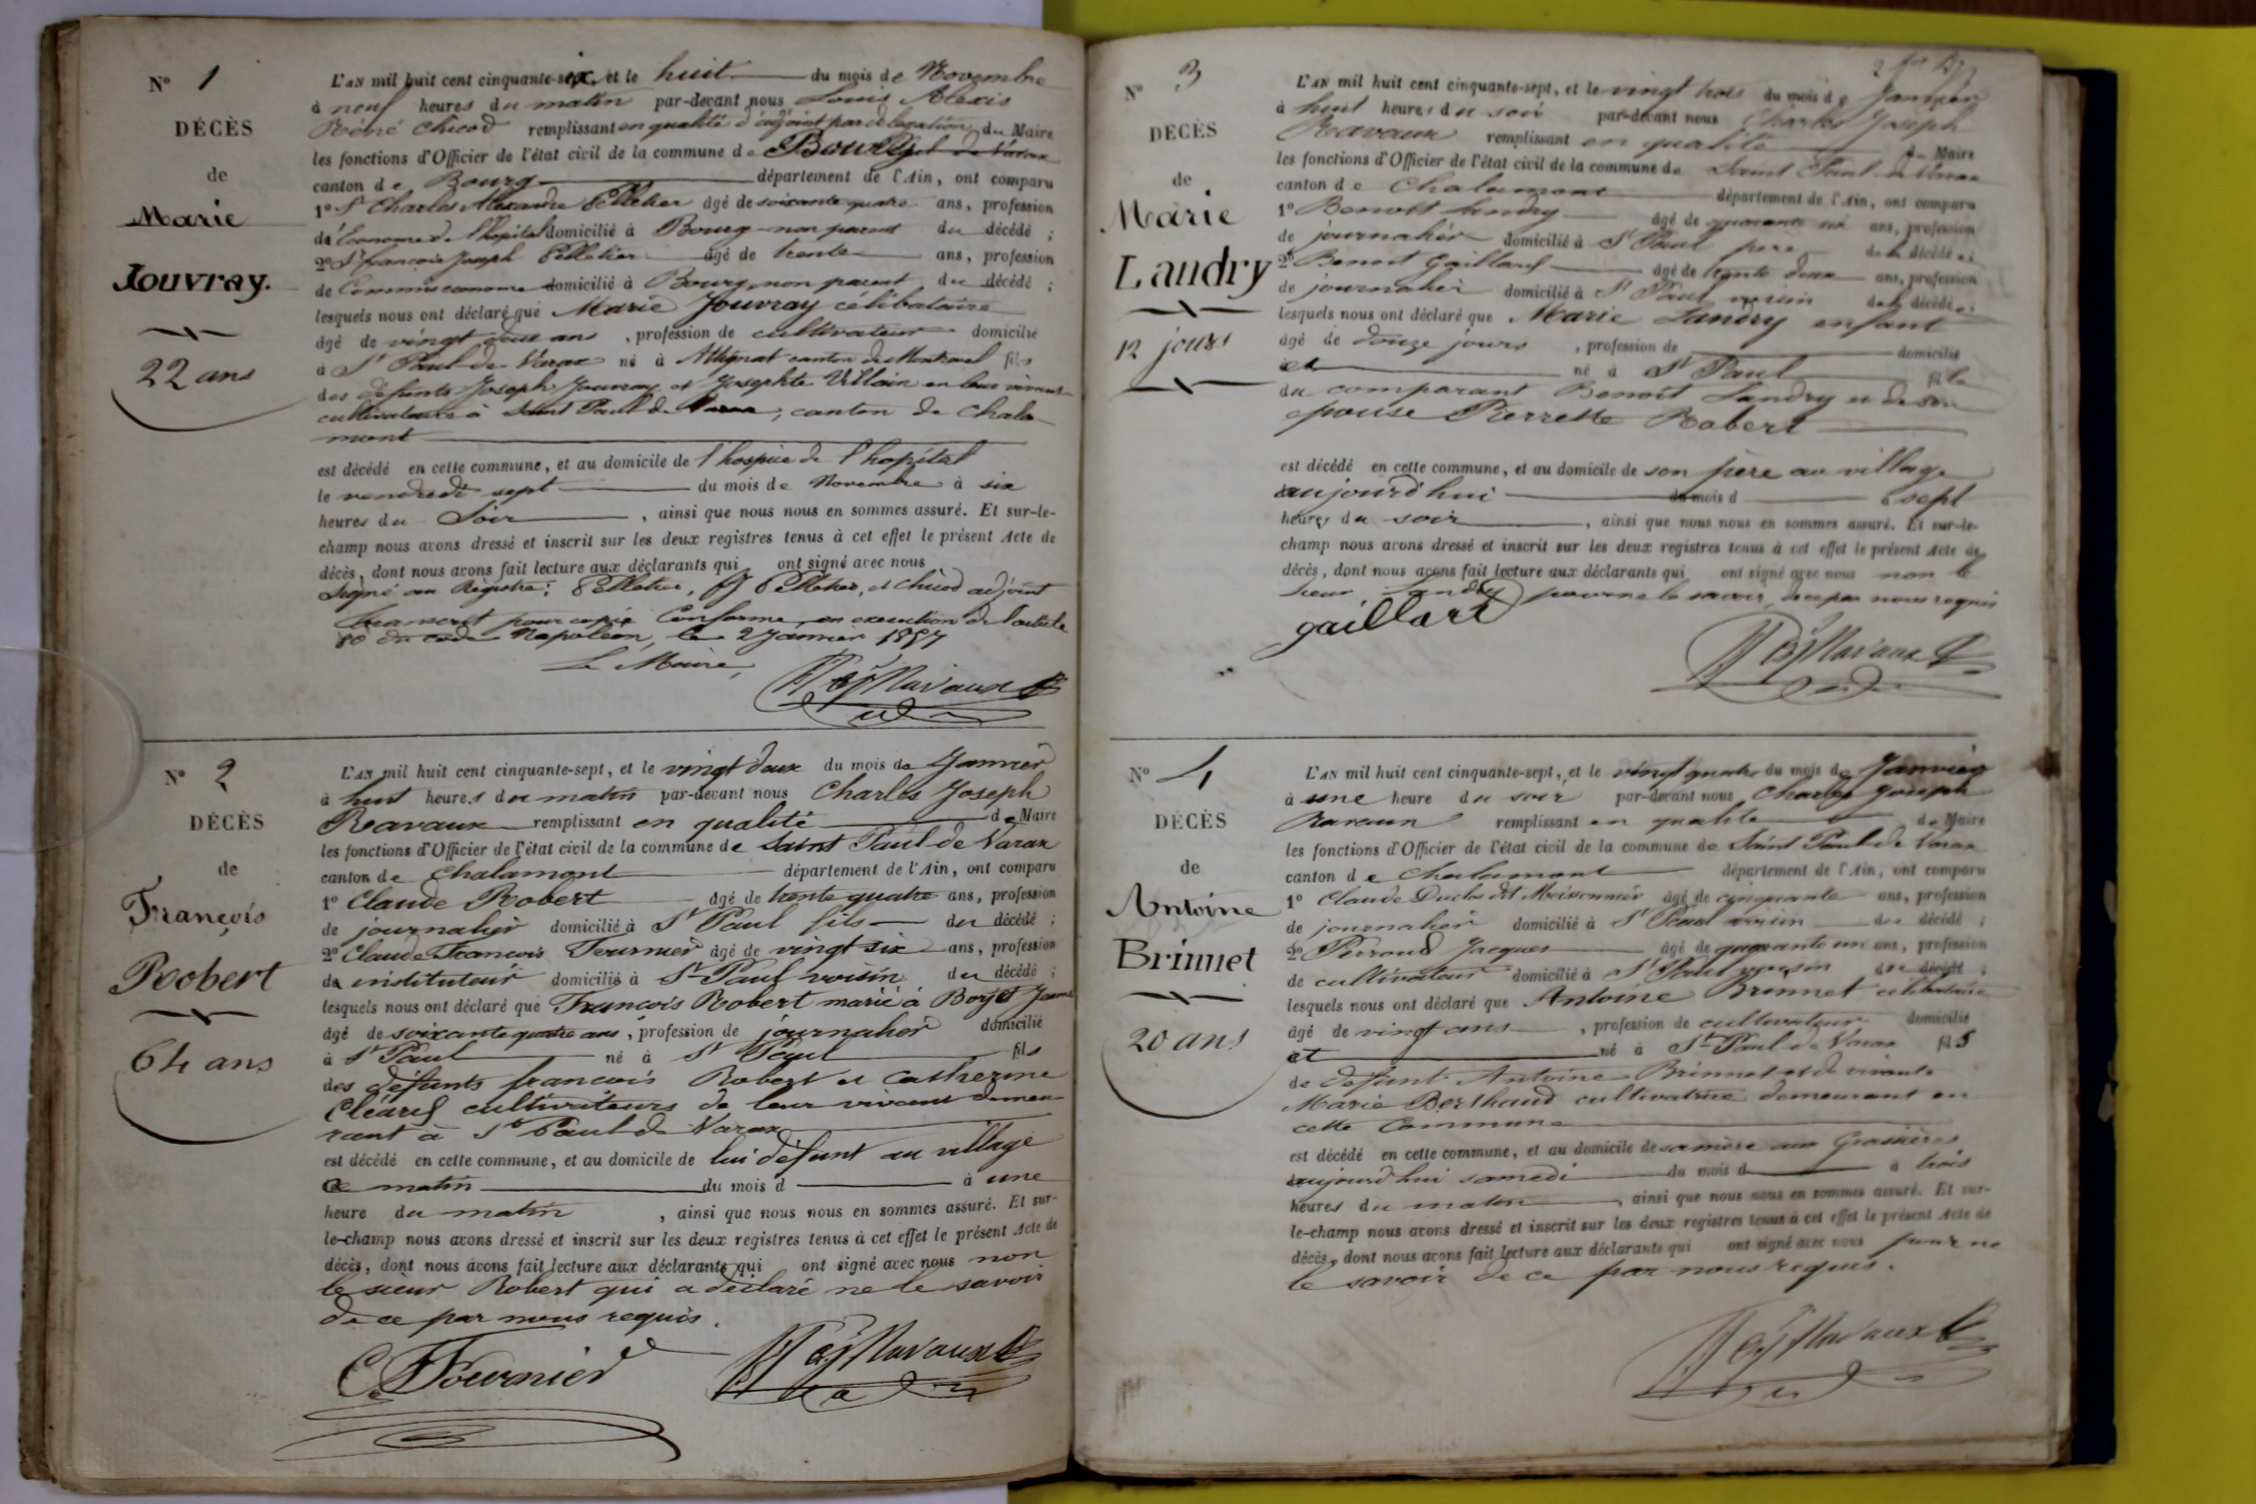 N° 1
DÉCÈS
de
Marie
Jouvray.
22 ans
L'AN mil huit cent cinquante-six, et le huit du mois de Novembre
à neuf heures du matin par-devant nous Louis Alexis
Réné Chicod remplissant en qualité d'adjoint par délégation du Maire
les fonctions d'Officier de l'état civil de la commune de Bourg
canton de Bourg département de l'Ain, ont comparu
1° Sr Charles Alexandre Pelletier âgé de soixante quatre ans, profession
d'Econome de l'hopital domicilié à Bourg non parent du décédé ;
2° Sr françois Joseph Pelletier âgé de trente ans, profession
de Commis econome domicilié à Bourg, non parent du décédé ;
lesquels nous ont déclaré que Marie Jouvray célibataire
âgé de vingt deux ans, profession de cultivateur domicilié
à St Paul de Varax né à Attignat canton de Montrevel fils
des défunts Joseph Jouvray et Josephte Villain en leur vivant
cultivateurs à Saint Paul de Varax, canton de Chala
mont
est décédé en cette commune, et au domicile de l'hospice de l'hopital
le vendredi sept du mois de Novembre à six
heures du Soir, ainsi que nous nous en sommes assuré. Et sur-le-
champ nous avons dressé et inscrit sur les deux registres tenus à cet effet le présent Acte de
décès, dont nous avons fait lecture aux déclarants qui ont signé avec nous
Signé au Régistre : Pelletier, Pelletier, et Chicod adjoint
Transcrit pour copie Conforme, en execution de l'article
80 du code Napoléon, le 2 Janvier 1857
Le Maire,
Ravaux
N° 2
DÉCÈS
de
François
Robert
64 ans
L'AN mil huit cent cinquante-sept, et le vingt deux du mois de Janvier
à huit heures du matin par-devant nous Charles Joseph
Ravaux remplissant en qualité de Maire
les fonctions d'Officier de l'état civil de la commune de Saint Paul de Varax
canton de Chalamont département de l'Ain, ont comparu
1° Claude Robert âgé de trente quatre ans, profession
de journalier domicilié à St Paul fils du décédé ;
2° Claude François Fournier âgé de vingt six ans, profession
de instituteur domicilié à St Paul voisin du décédé ;
lesquels nous ont déclaré que François Robert marié à Boyet Jeanne
âgé de soixante quatre ans, profession de journalier domicilié
à St Paul né à St Paul fils
des défunts françois Robert et Catherine
Cléaref cultivateurs de leur vivant demeu
rant à St Paul de Varax
est décédé en cette commune, et au domicile de lui défunt au village
ce matin du mois d à une
heure du matin, ainsi que nous nous en sommes assuré. Et sur-
le-champ nous avons dressé et inscrit sur les deux registres tenus à cet effet le présent Acte de
décès, dont nous avons fait lecture aux déclarants qui ont signé avec nous non
le sieur Robert qui a déclaré ne le savoir
de ce par nous requis.
C. Fournier Ravaux
N° 3
DÉCÈS
de
Marie
Landry
12 jours
L'AN mil huit cent cinquante-sept, et le vingt trois du mois de Janvier
à huit heures du soir par-devant nous Charles Joseph
Ravaux remplissant en qualité de Maire
les fonctions d'Officier de l'état civil de la commune de Saint Paul de Varax
canton de Chalamont département de l'Ain, ont comparu
1° Benoît Landry âgé de quarante six ans, profession
de journalier domicilié à St Paul père de la décédée ;
2° Benoît Gaillard âgé de trente deux ans, profession
de journalier domicilié à St Paul voisin de la décédée ;
lesquels nous ont déclaré que Marie Landry enfant
âgé de douze jours, profession de domicilié
et né à St Paul fille
du comparant Benoît Landry et de son
épouse Pierrette Robert
est décédé en cette commune, et au domicile de son père au village
aujourd'hui du mois d à sept
heures du soir, ainsi que nous nous en sommes assuré. Et sur-le-
champ nous avons dressé et inscrit sur les deux registres tenus à cet effet le présent Acte de
décès, dont nous avons fait lecture aux déclarants qui ont signé avec nous non le
sieur Landry pour ne le savoir de ce par nous requis
gaillard
Ravaux
N° 4
DÉCÈS
de
Antoine
Brinnet
20 ans
L'AN mil huit cent cinquante-sept, et le vingt quatre du mois de Janvier
à une heure du soir par-devant nous Charles Joseph
Ravaux remplissant en qualité de Maire
les fonctions d'Officier de l'état civil de la commune de Saint Paul de Varax
canton de Chalamont département de l'Ain, ont comparu
1° Claude Duclos dit Moissonnier âgé de cinquante ans, profession
de journalier domicilié à St Paul voisin du décédé ;
2° Perroud Jacques âgé de quarante un ans, profession
de cultivateur domicilié à St Paul voisin du décédé ;
lesquels nous ont déclaré que Antoine Brinnet célibataire
âgé de vingt ans, profession de cultivateur domicilié
et né à St Paul de Varax fils
de défunt Antoine Brinnet et de vivante
Marie Berthaud cultivatrice demeurant en
cette Commune
est décédé en cette commune, et au domicile de sa mère aux
aujourd'hui samedi du mois d à trois
heures du matin, ainsi que nous nous en sommes assuré. Et sur-
le-champ nous avons dressé et inscrit sur les deux registres tenus à cet effet le présent Acte de
décès, dont nous avons fait lecture aux déclarants qui ont signé avec nous pour ne
le savoir de ce par nous requis.
Ravaux